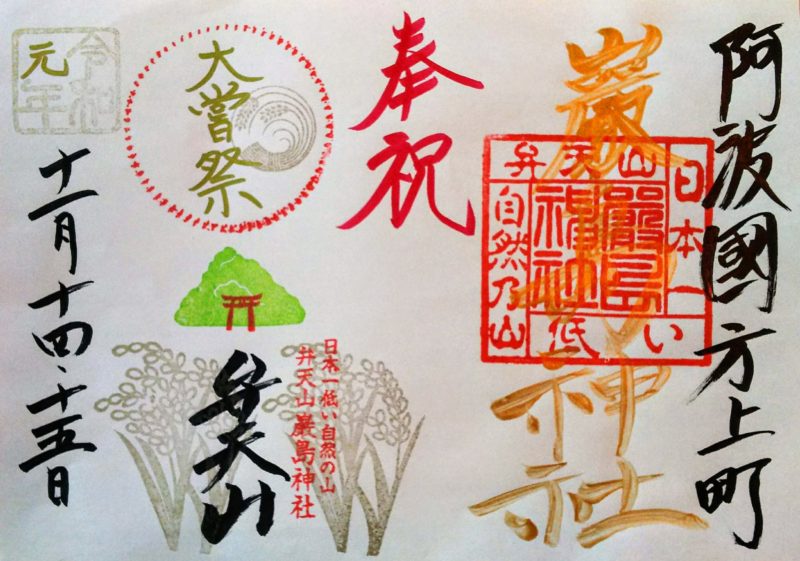 阿波國一方上町
巖島神社
日本一
い低
弁天山
自然乃山
嚴島
神社
奉祝
大嘗祭
日本一低い自然の山
弁天山巖島神社
弁天山
令和
元年
十一月十四・十五日